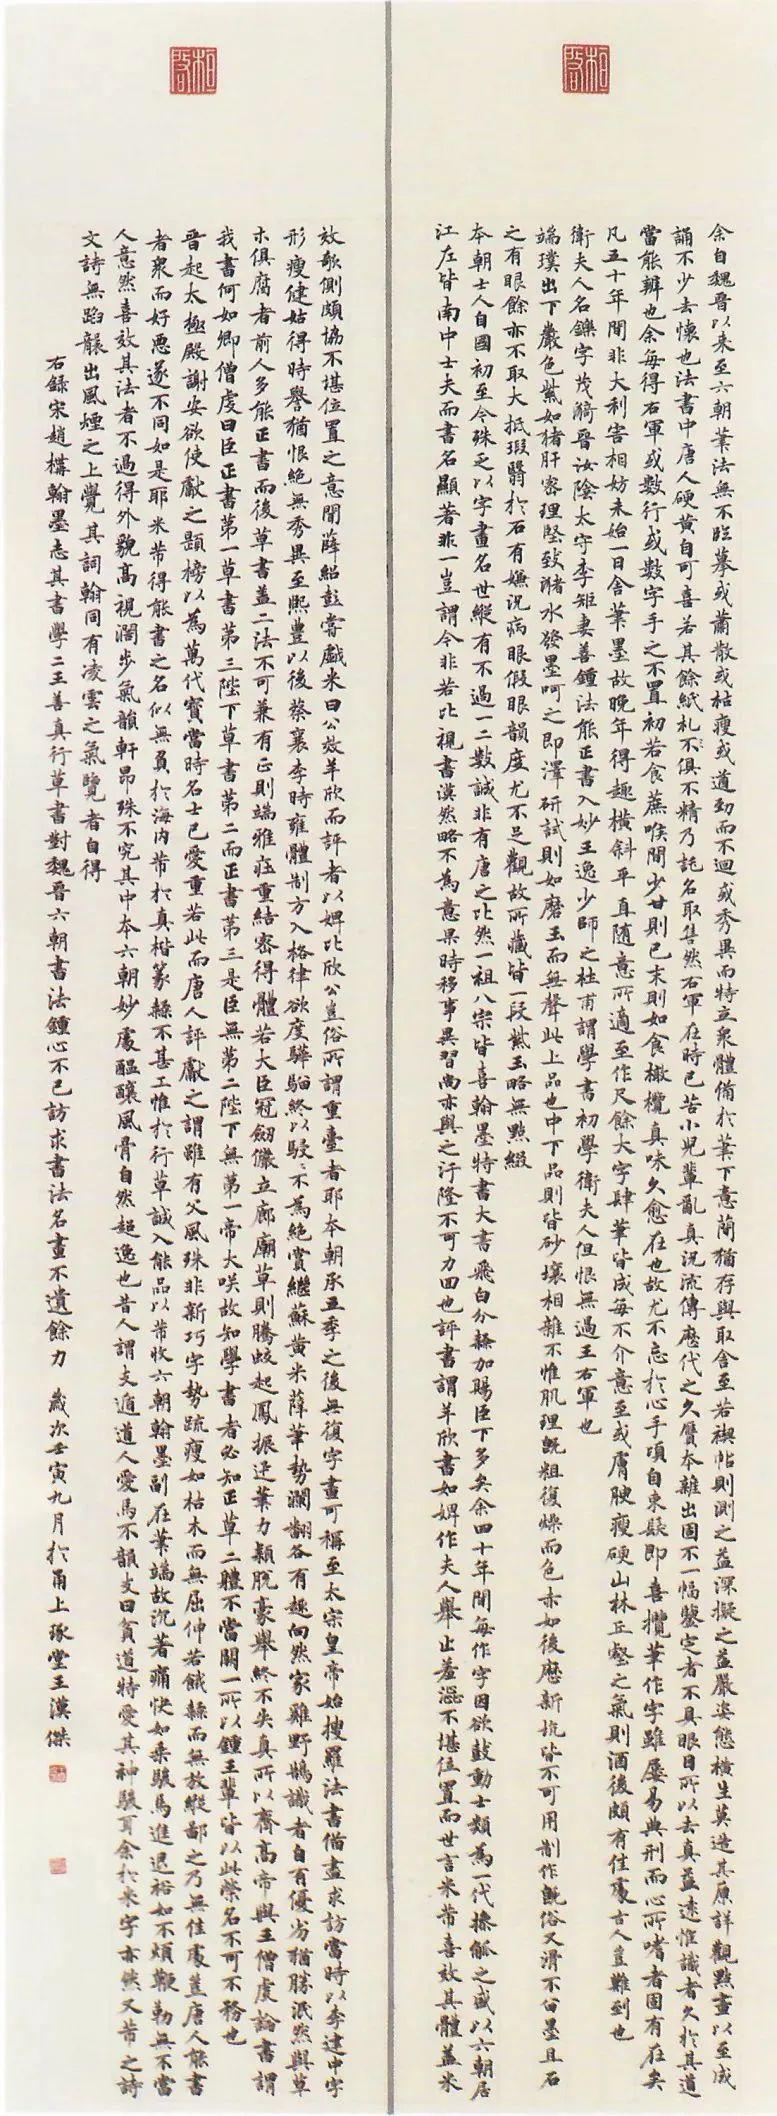 余自魏晉以来至六朝筆法無不臨摹或蕭散或枯瘦或遒勁而不迴或秀異而特立衆體備於筆下意簡猶存與取舍至若禊帖則測之益深擬之益嚴姿態横生莫造其原詳觀點畫以至成
誦不少去懐也法書中唐人硬黄自可喜若其餘紙札不俱不精乃託名取售然右軍在時已苦小兒輩亂真況流傳歷代之久贋本雜出固不一幅鑒定者不具眼目所以去真益遠惟識者久於其道
當能辨也余每得右軍或數行或數字手之不置初若食蔗喉間少甘則已末則如食橄欖真味久愈在也故尤不忘於心手頃自束髮即喜攬筆作字雖屡易典刑而心所嗜者固有在矣
凡五十年間非大利害相妨未始一日舍筆墨故晚年得趣横斜平直随意所適至作尺餘大字肆筆皆成每不介意至或膚腴瘦硬山林丘壑之氣則酒後頗有佳處古人豈難到也
衛夫人名鑠字茂漪晉汝陰太守李矩妻善鍾法能正書入妙王逸少師之杜甫謂學書初學衛夫人但恨無過王右軍也
端璞出下巖色紫如猪肝密理堅致潴水發墨呵之即澤研試則如磨玉而無聲此上品也中下品則皆砂壤相雜不惟肌理既粗復燥而色赤如後歷新坑皆不可用制作既俗又滑不留墨且石
之有眼餘亦不取大抵瑕翳於石有嫌況病眼假眼韻度尤不足觀故所藏皆一段紫玉略無點綴
本朝士人自國初至今殊乏以字畫名世縱有不過一二數誠非有唐之比然一祖八宗皆喜翰墨特書大書飛白分隸加賜臣下多矣余四十年間每作字因欲鼓動士類為一代操觚之盛以六朝居
江左皆南中士夫而書名顯著非一豈謂今非若比視書漠然略不為意果時移事異習尚亦與之汙隆不可力回也評書謂羊欣書如婢作夫人舉止羞澀不堪位置而世言米芾喜效其體蓋米
效欹側頗協不堪位置之意聞薛紹彭嘗戯米曰公效羊欣而評者以婢比欣公豈俗所謂重臺者耶本朝承五季之後無復字畫可稱至太宗皇帝始搜羅法書備盡求訪當時以李建中字
形瘦健姑得時譽猶恨絶無秀異至熙豊以後蔡襄李時雍體制方入格律欲度驊騮終以駸駸不為絶賞繼蘇黄米薛筆勢瀾翻各有趣向然家雞野鵠識者自有優劣猶勝泯然與草
木俱腐者前人多能正書而後草書蓋二法不可兼有正則端雅荘重結密得體若大臣冠劒儼立廊廟草則騰蛟起鳳振迅筆力穎脱豪舉終不失真所以齊高帝與王僧虔論書謂
我書何如卿僧虔曰臣正書第一草書第三陛下草書第二而正書第三是臣無第二陛下無第一帝大咲故知學書者必知正草二體不當闕一所以鍾王輩皆以此榮名不可不務也
晉起太極殿謝安欲使獻之題榜以為萬代寶當時名士已愛重若此而唐人評獻之謂雖有父風殊非新巧字勢疏瘦如枯木而無屈伸若餓隸而無放縱鄙之乃無佳處蓋唐人能書
者衆而好惡遂不同如是耶米芾得能書之名似無負於海内芾於真楷篆隸不甚工惟於行草誠入能品以芾收六朝翰墨副在筆端故沉著痛快如乗駿馬進退裕如不煩鞭勒無不當
人意然喜效其法者不過得外貌高視濶步氣韻軒昂殊不究其中本六朝妙處醖釀風骨自然超逸也昔人謂支遁道人愛馬不韻支曰貧道特愛其神駿耳余於米字亦然又芾之詩
文詩無蹈襲出風煙之上覺其詞翰同有凌雲之氣覽者自得
右録宋趙構翰墨志其書學二王善真行草書對魏晉六朝書法鍾心不已訪求書法名畫不遺餘力　歲次壬寅九月於甬上琢堂王漢傑